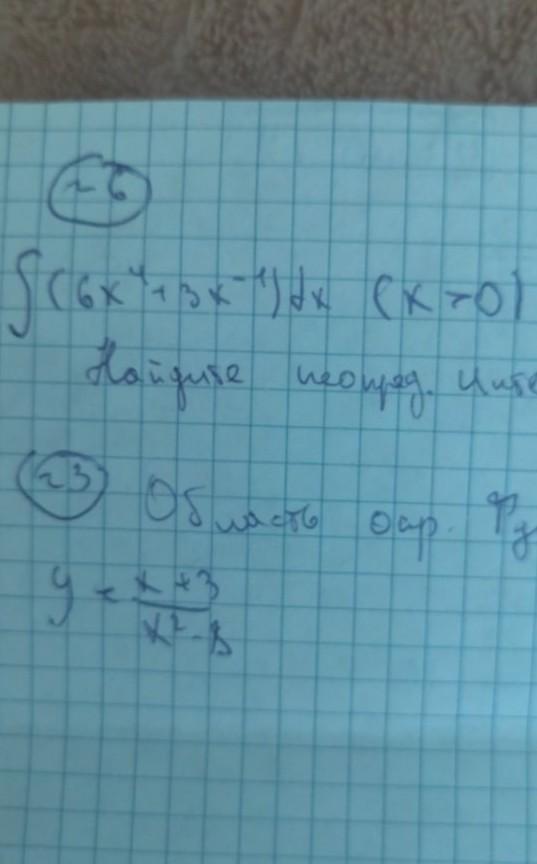 ~6
∫(6x⁴+3x⁻¹)dx (x>0)
Найдите неопред. Инте
~3 Область опр. Фу
y = x+3 / x²-